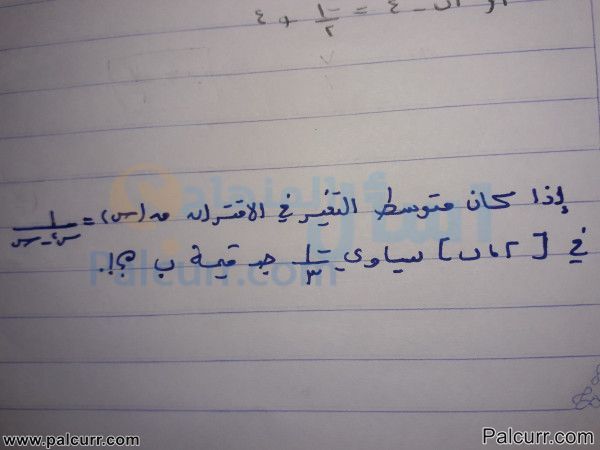 إذا كان متوسط التغير في الاقتران ق (س) = ١/س٢-س
في [٢،ب] يساوي -١/٣ جد قيمة ب ؟!.
www.palcurr.com
Palcurr.com